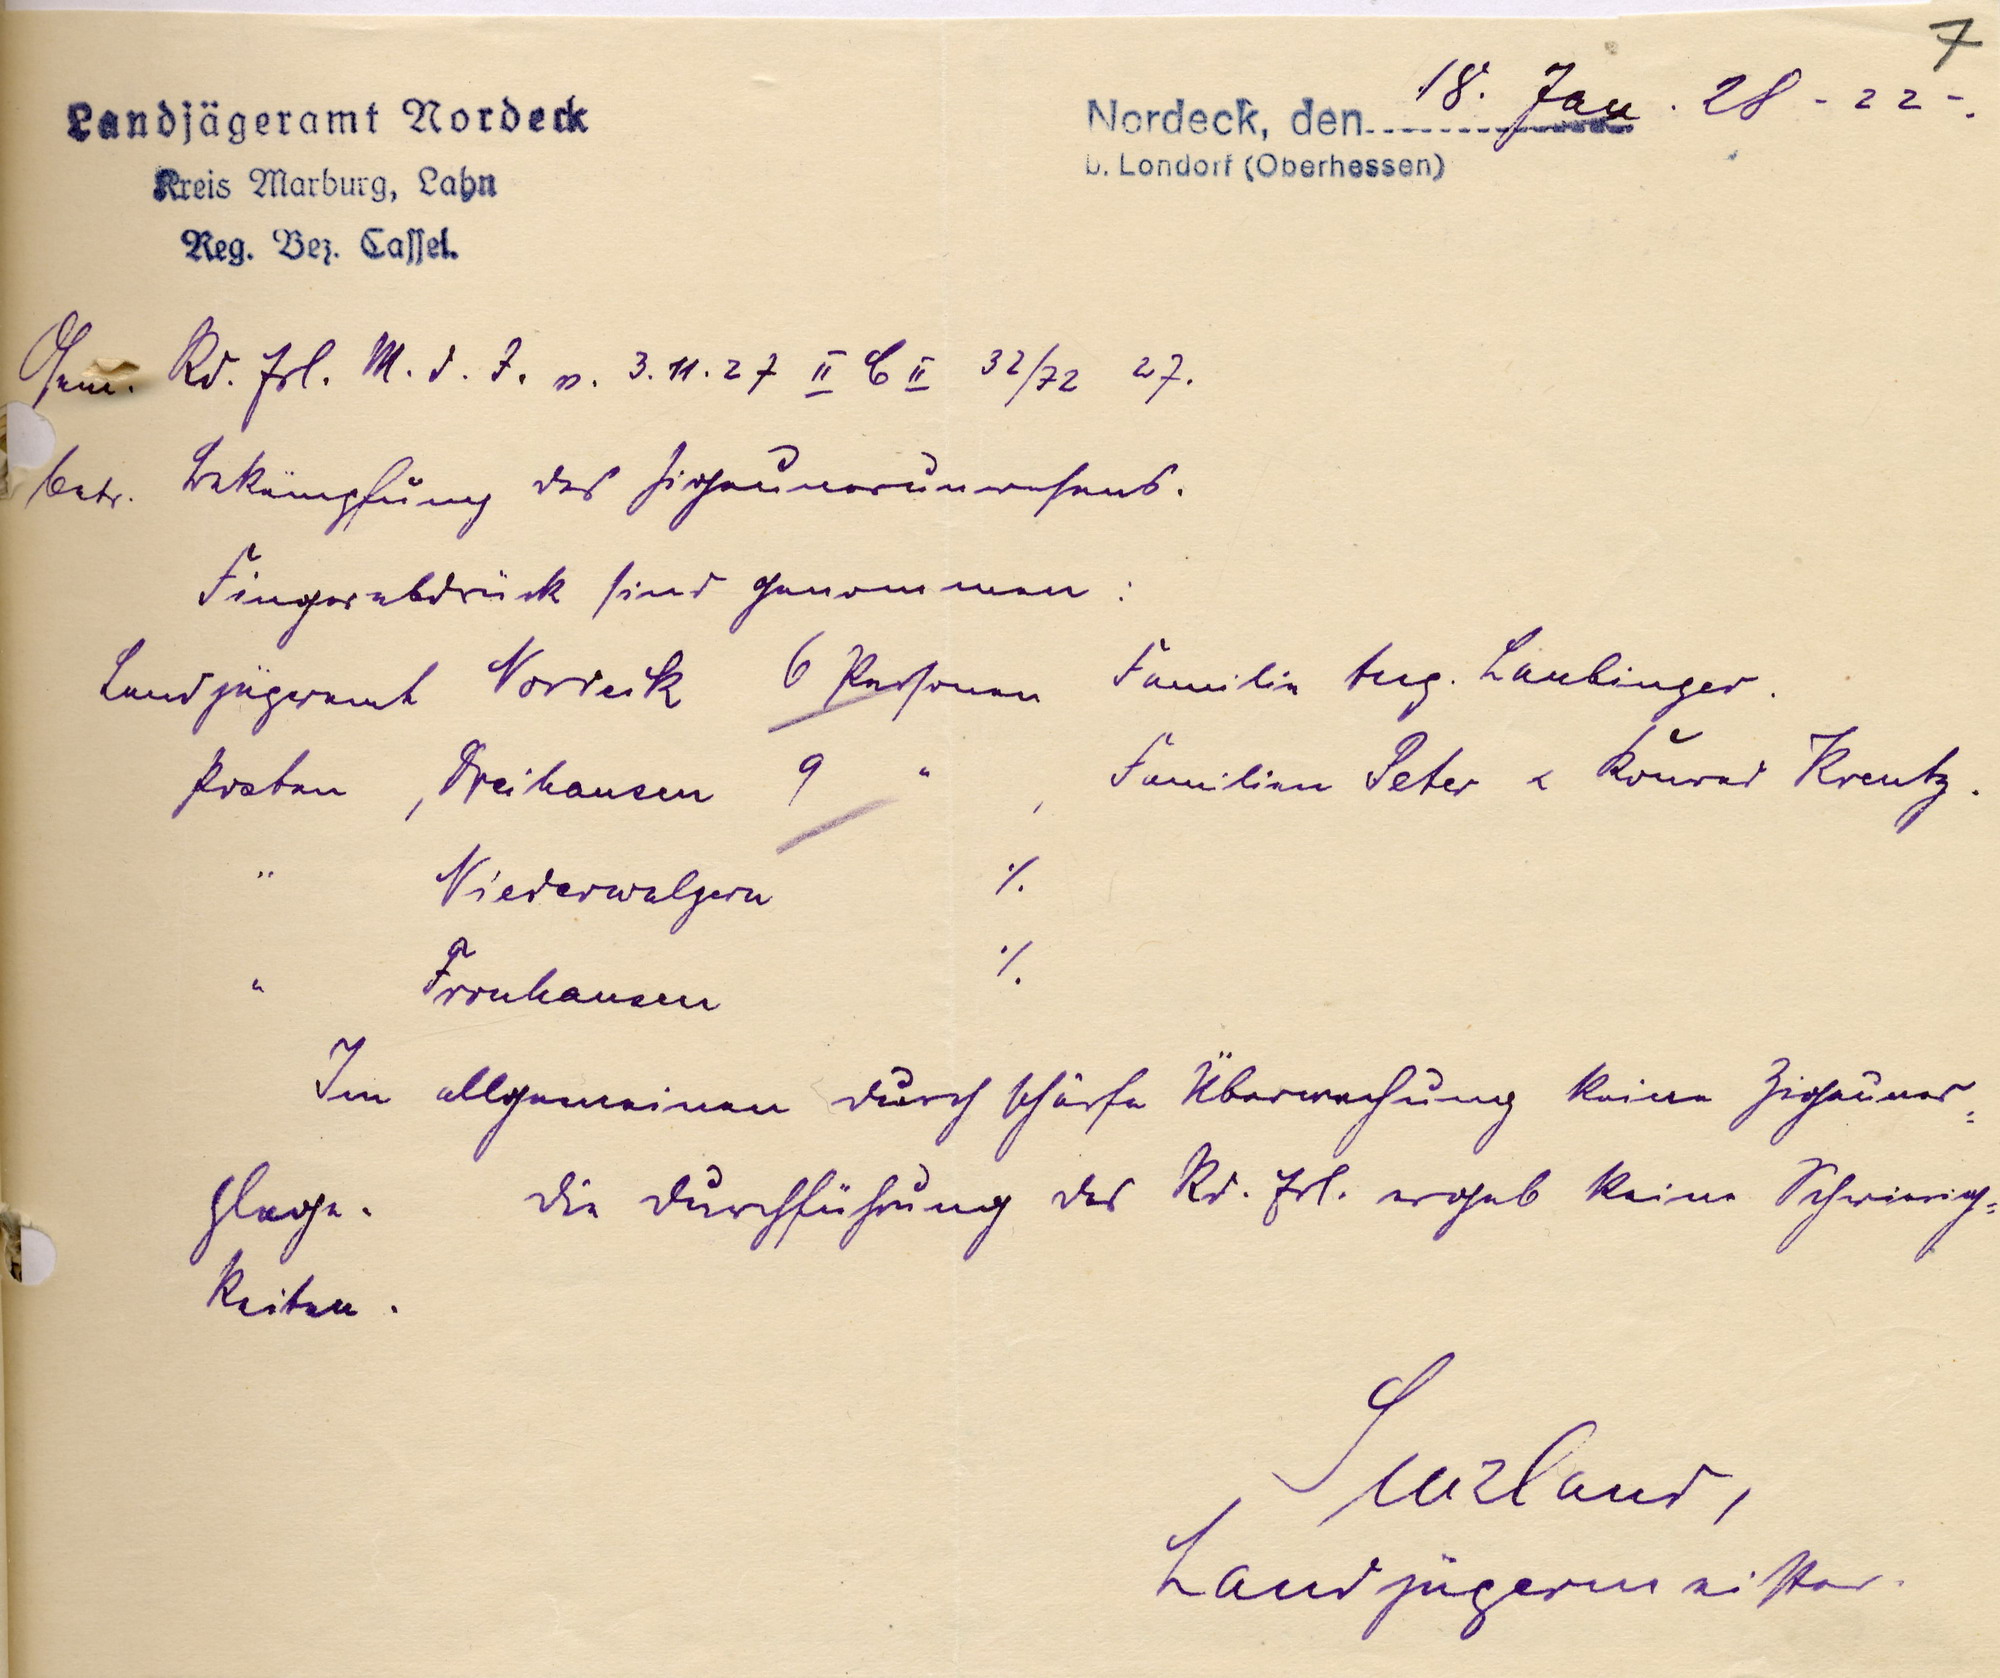 7
Landjägeramt Nordeck
Kreis Marburg, Lahn
Reg. Bez. Cassel.
Nordeck, den 18. Jan. 28 - 22 -.
b. Londorf (Oberhessen)
Gem. Rd. Erl. M. d. I. v. 3.11.27 II C II 32/72 27.
betr. Bekämpfung des Zigeunerunwesens.
Fingerabdrück sind genommen:
Landjägeramt Nordeck 6 Personen Familie Aug. Laubinger.
Posten, Dreihausen 9 " , Familien Peter & Konrad Kreutz.
" Niederwalgern ./.
" Fronhausen ./.
Im allgemeinen durch schärfe Überwachung keine Zigeuner=
plage. Die Durchführung des Rd. Erl. ergab keine Schwierig=
keiten.
Landjägermeister.